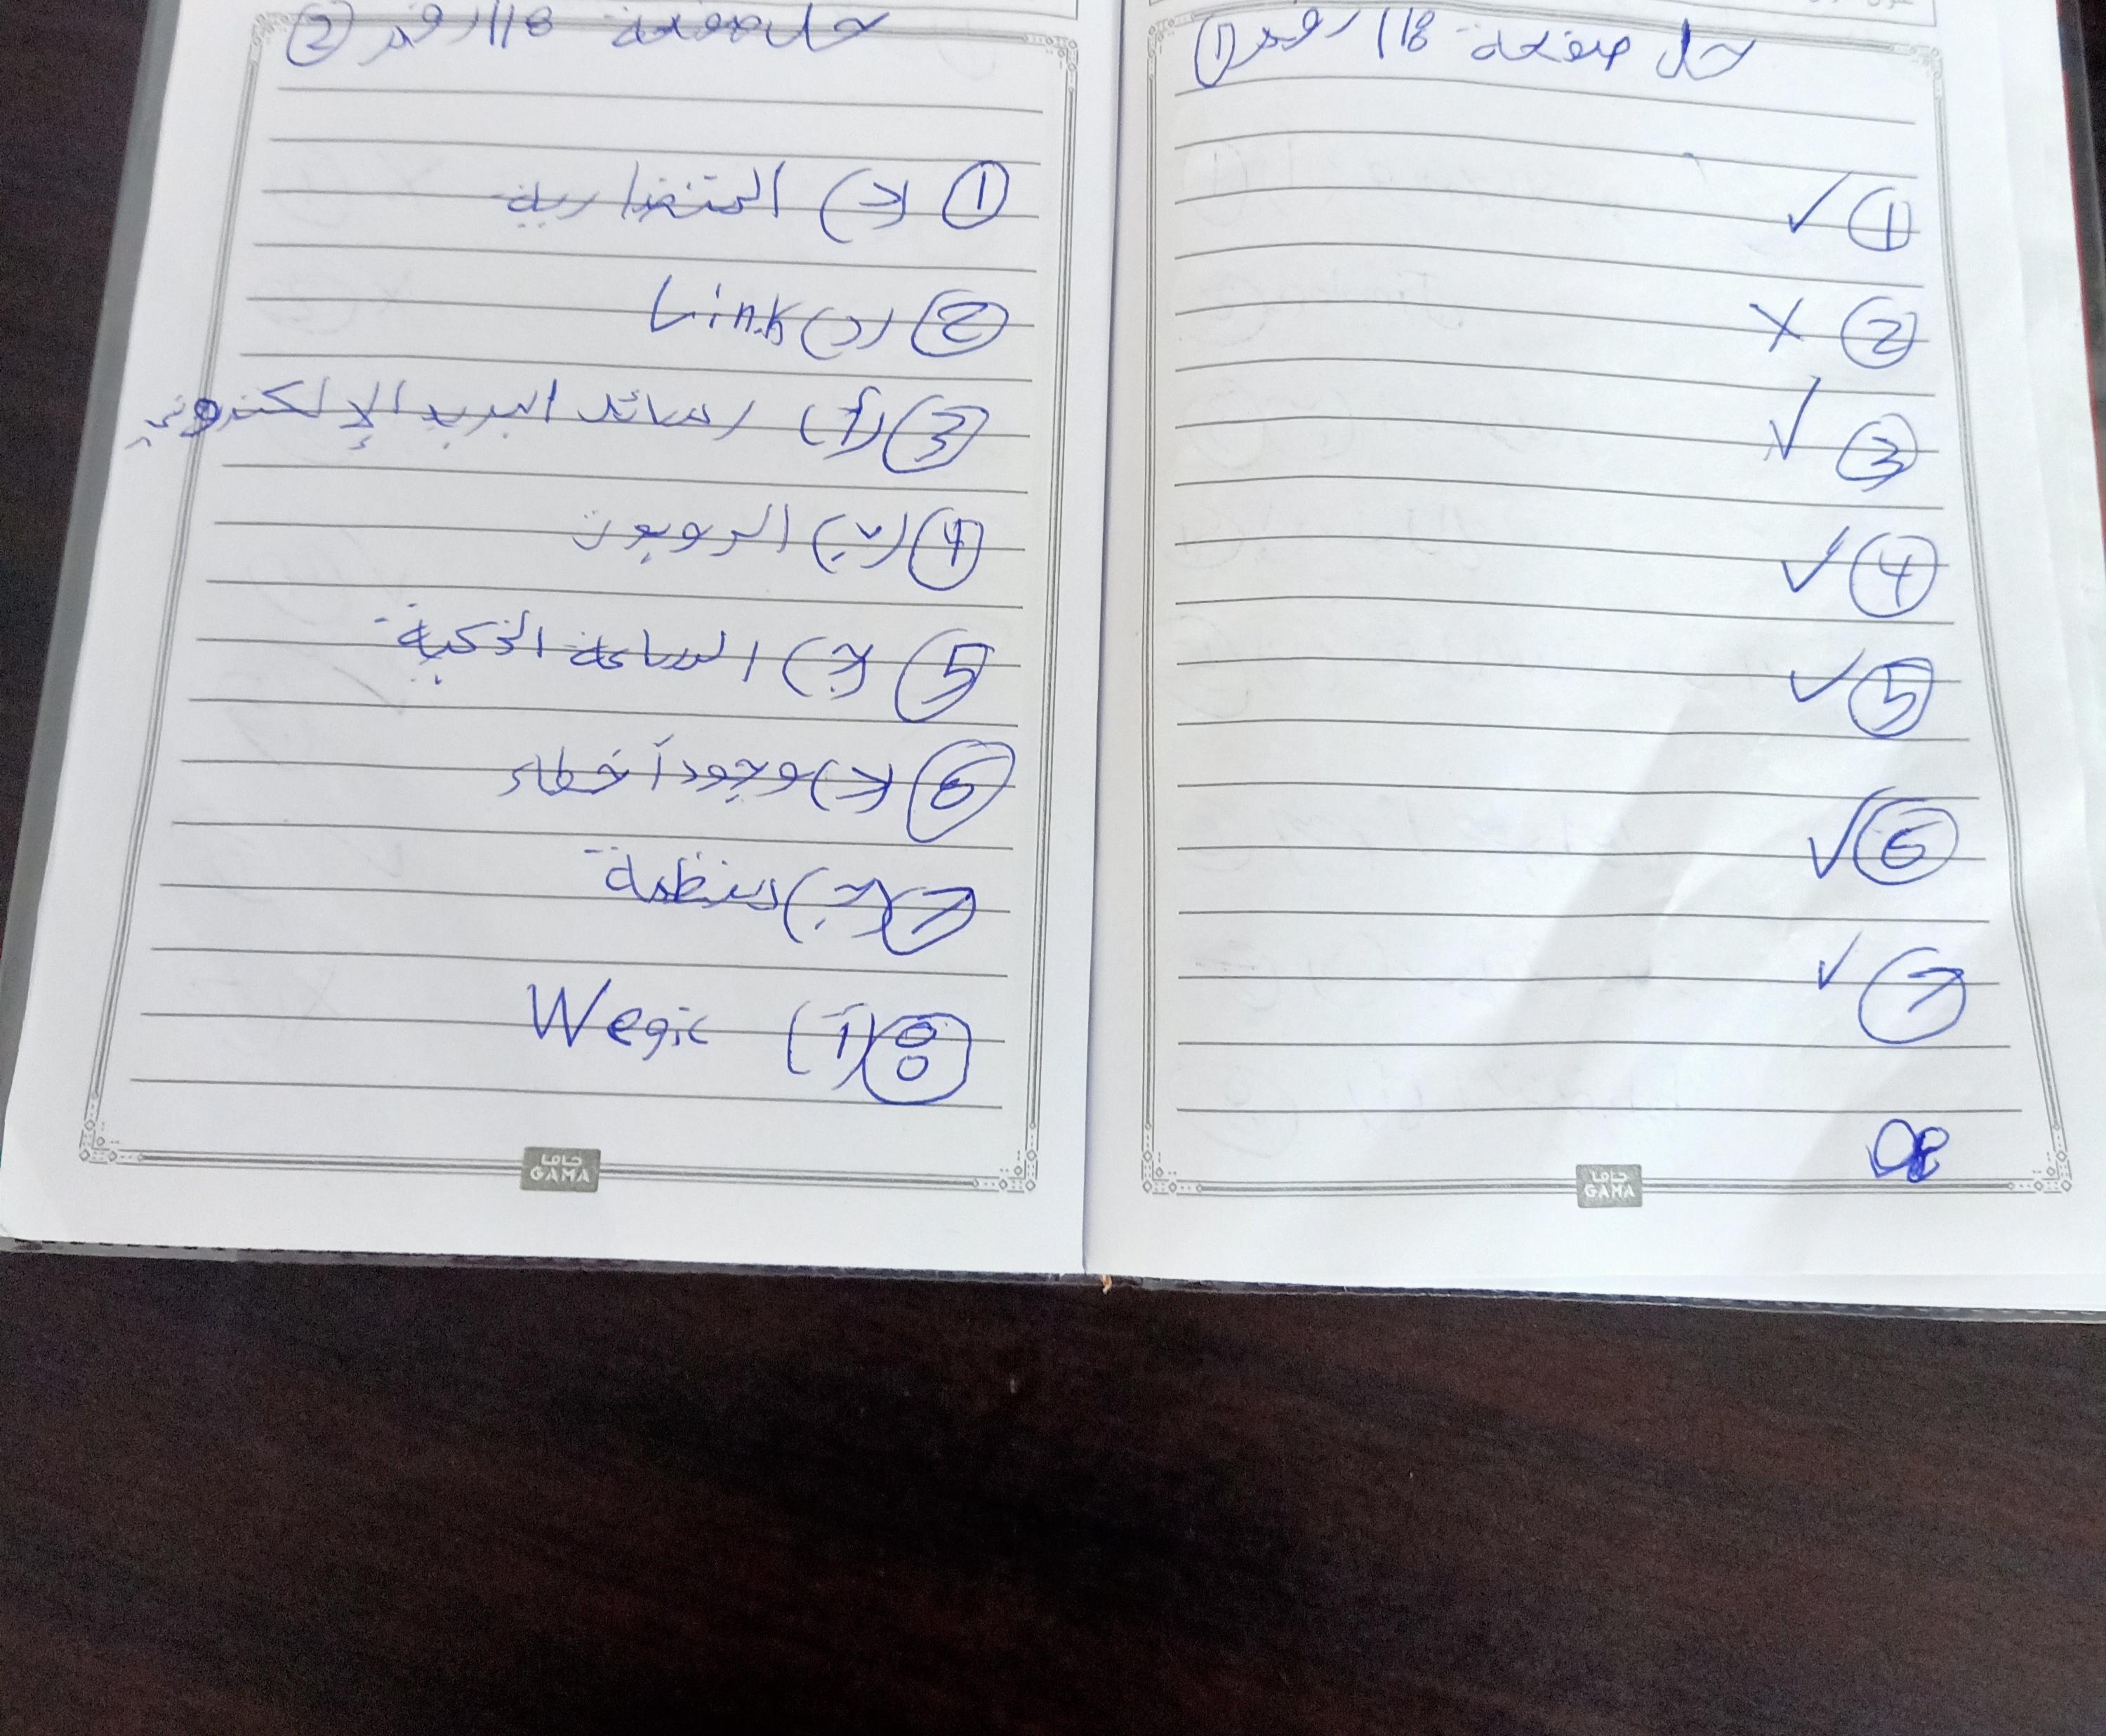 حل صفحة 118 رقم ①
① ✓
② X
③ ✓
④ ✓
⑤ ✓
⑥ ✓
⑦ ✓
جاما
GAMA
حل صفحة 118 رقم ②
① (د)
② (د) Link
③ (أ) رسائل البريد الإلكتروني
④ (ب) الروبوت
⑤ (ج) الساعة الذكية
⑥ (د) وجود أخطاء
⑦ (ج) منظمة
⑧ (أ) Wegic
جاما
GAMA